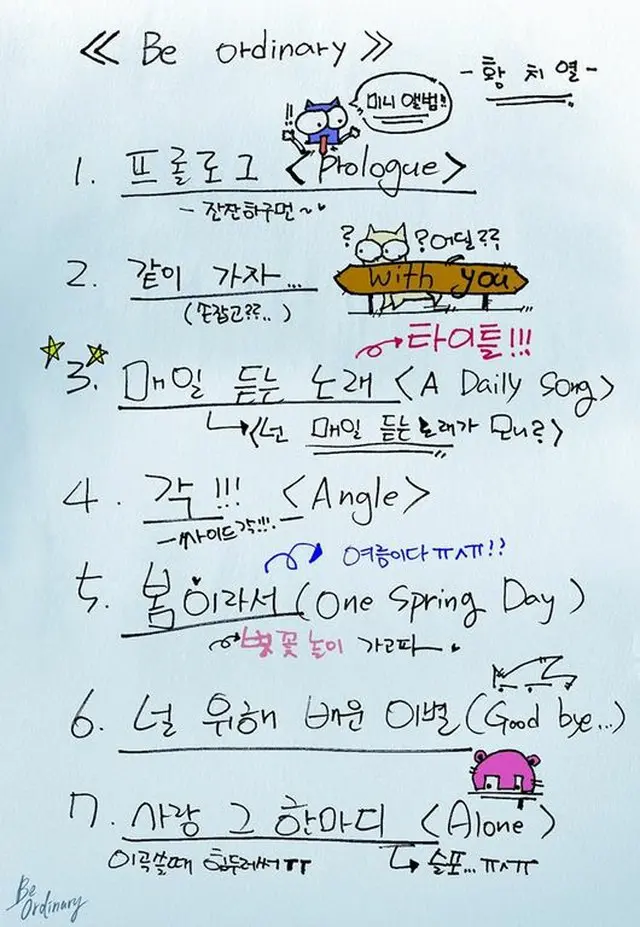 ≪ Be ordinary ≫
- 황 치 열 -
!! 미니 앨범!!
1. 프롤로그 <Prologue>
- 잔잔하구먼~♥
? ? 어딜??
2. 같이 가자... with you
(손잡고??..)
타이틀!!!
3. 매일 듣는 노래 <A Daily Song>
<넌 매일 듣는 노래가 모니?>
4. 각!!! <Angle>
- 싸이드각!!! -
여름이다 ㅠㅅㅠ!?
5. 봄이라서 (One Spring Day)
벚꽃놀이 가고파~
6. 널 위해 배운 이별 (Good bye...)
7. 사랑 그 한마디 <Alone>
이곡쓸때 힘두러써ㅠㅠ 슬포...ㅠㅅㅠ
Be Ordinary